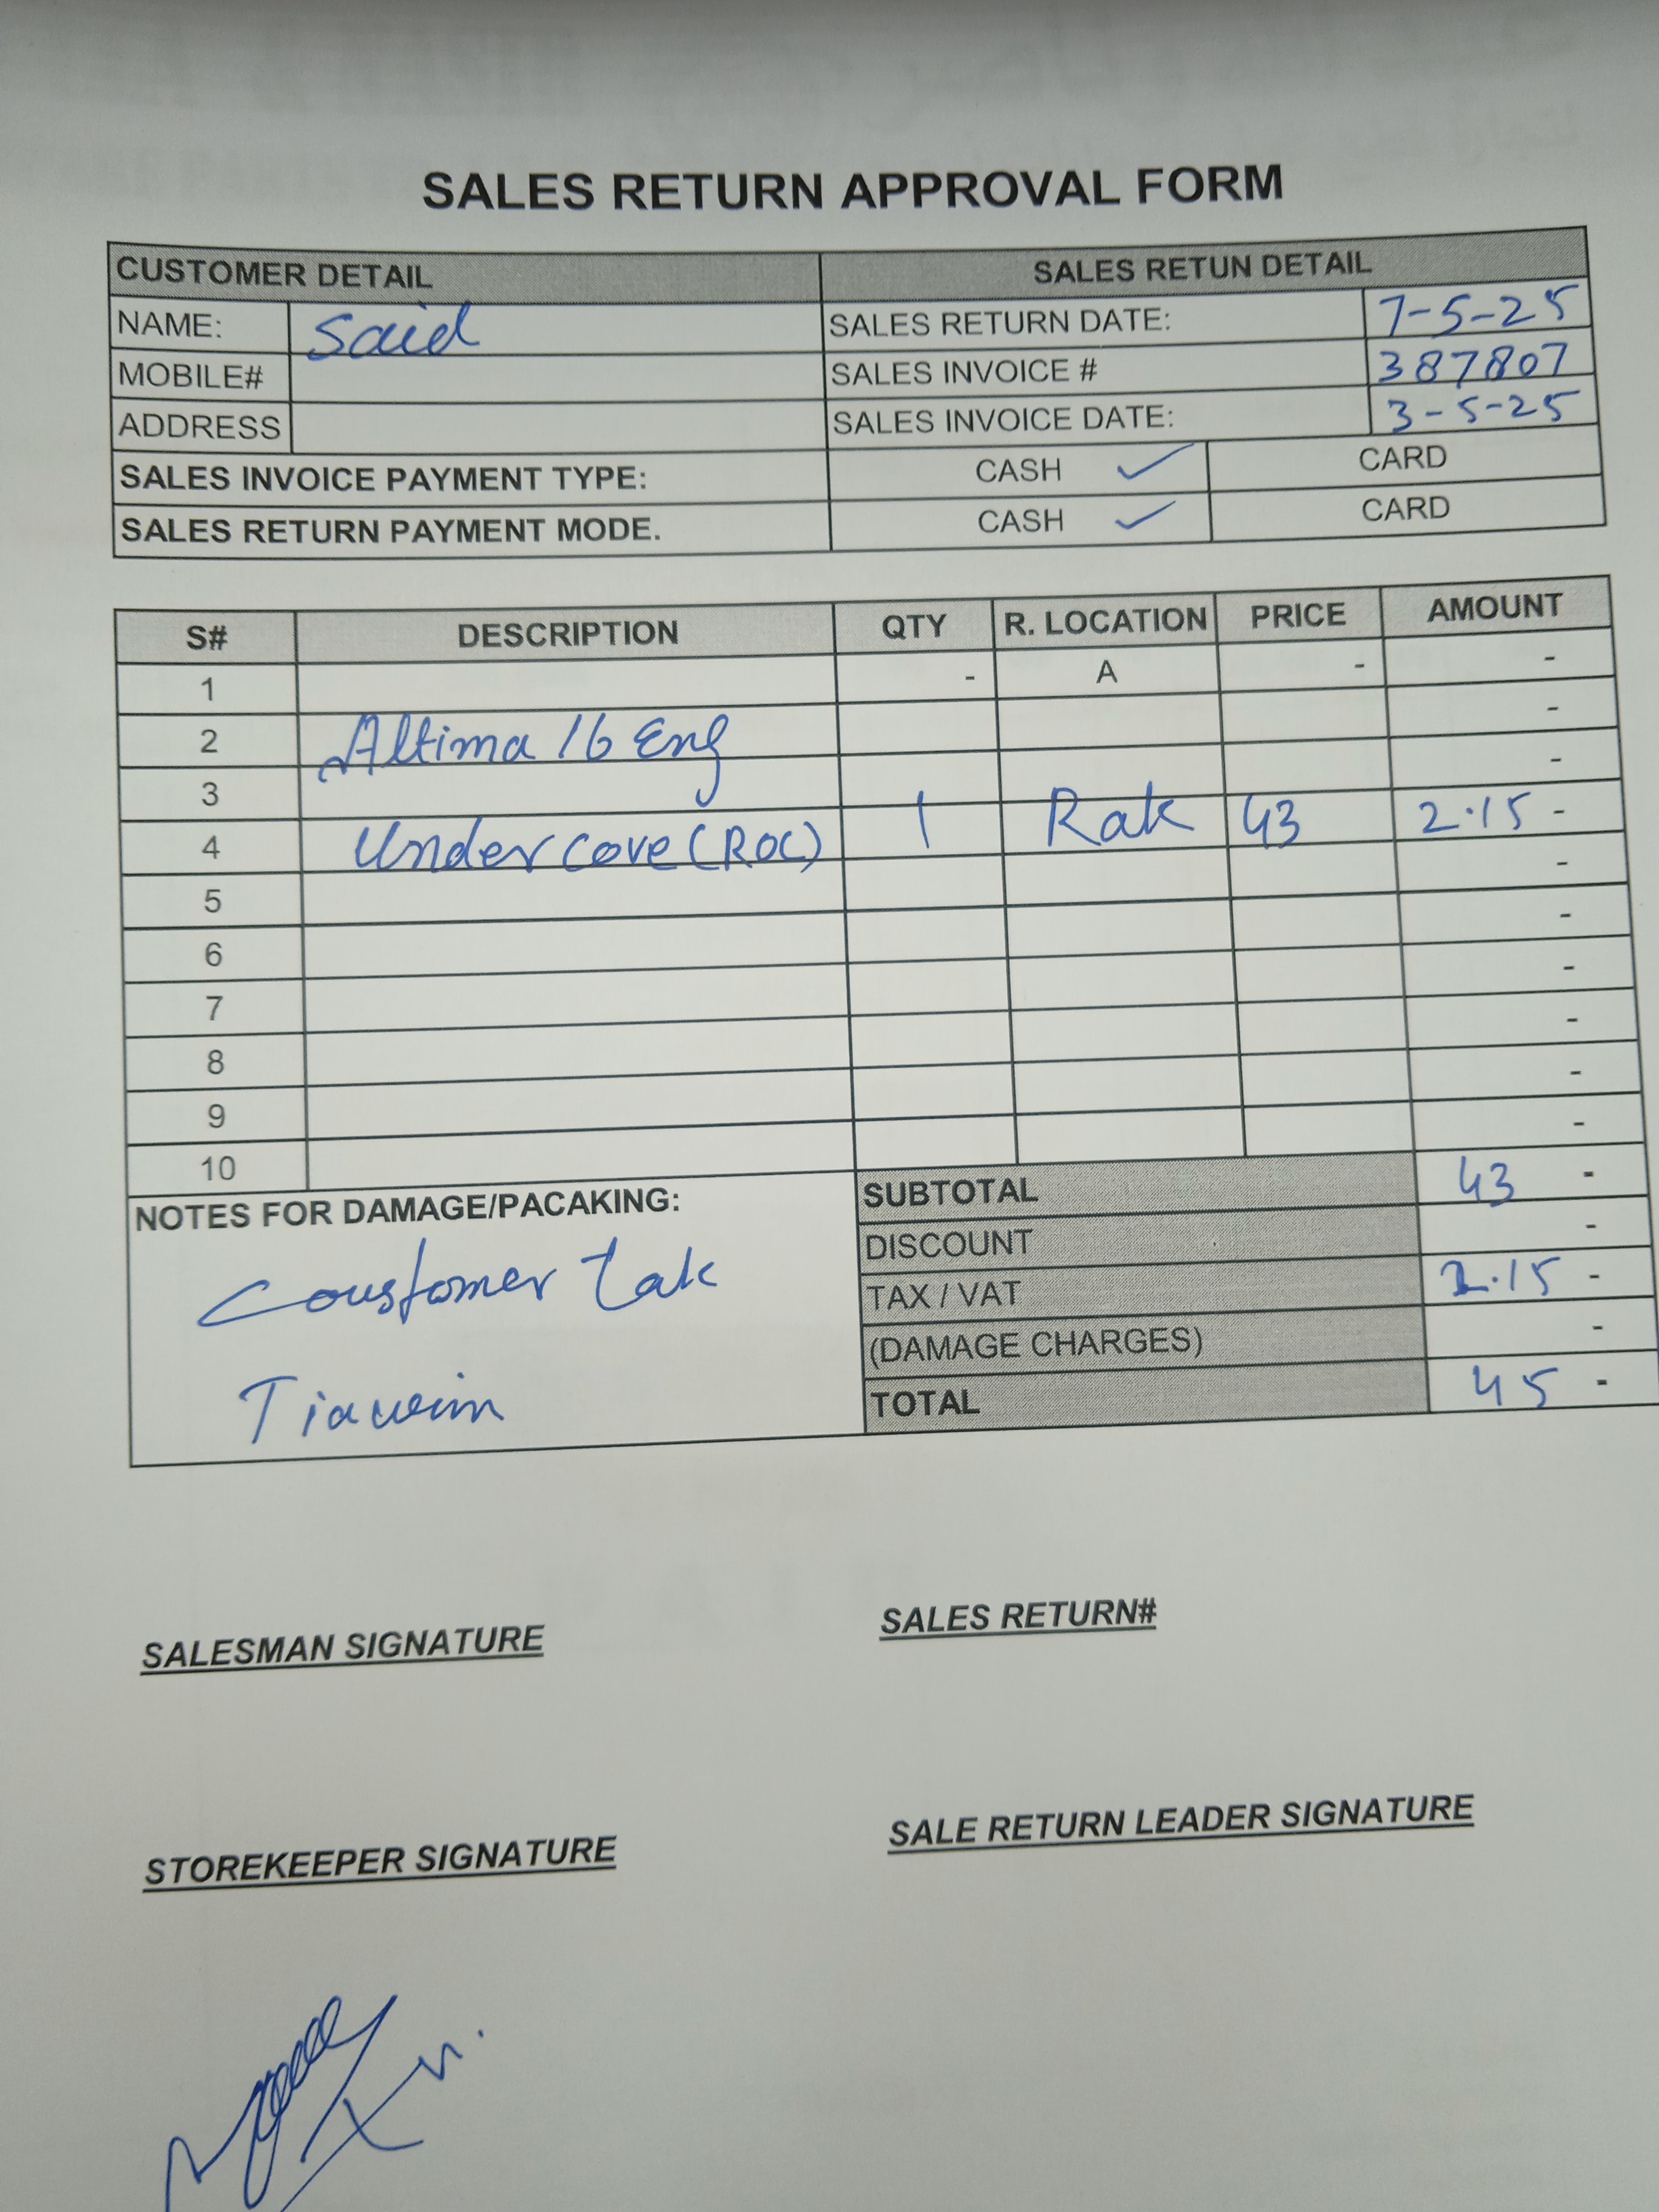 SALES RETURN APPROVAL FORM
CUSTOMER DETAIL SALES RETUN DETAIL
NAME: Said SALES RETURN DATE: 7-5-25
MOBILE# SALES INVOICE # 387807
ADDRESS SALES INVOICE DATE: 3-5-25
SALES INVOICE PAYMENT TYPE: CASH ✓ CARD
SALES RETURN PAYMENT MODE. CASH ✓ CARD
S# DESCRIPTION QTY R. LOCATION PRICE AMOUNT
1 - A - -
2 Altima 16 Eng -
3 -
4 Under cove (ROC) 1 Rak 43 2.15 -
5 -
6 -
7 -
8 -
9 -
10 -
NOTES FOR DAMAGE/PACAKING: SUBTOTAL 43 -
DISCOUNT -
Coustomer tak TAX / VAT 2.15 -
(DAMAGE CHARGES) -
TOTAL 45 -
SALESMAN SIGNATURE SALES RETURN#
STOREKEEPER SIGNATURE SALE RETURN LEADER SIGNATURE